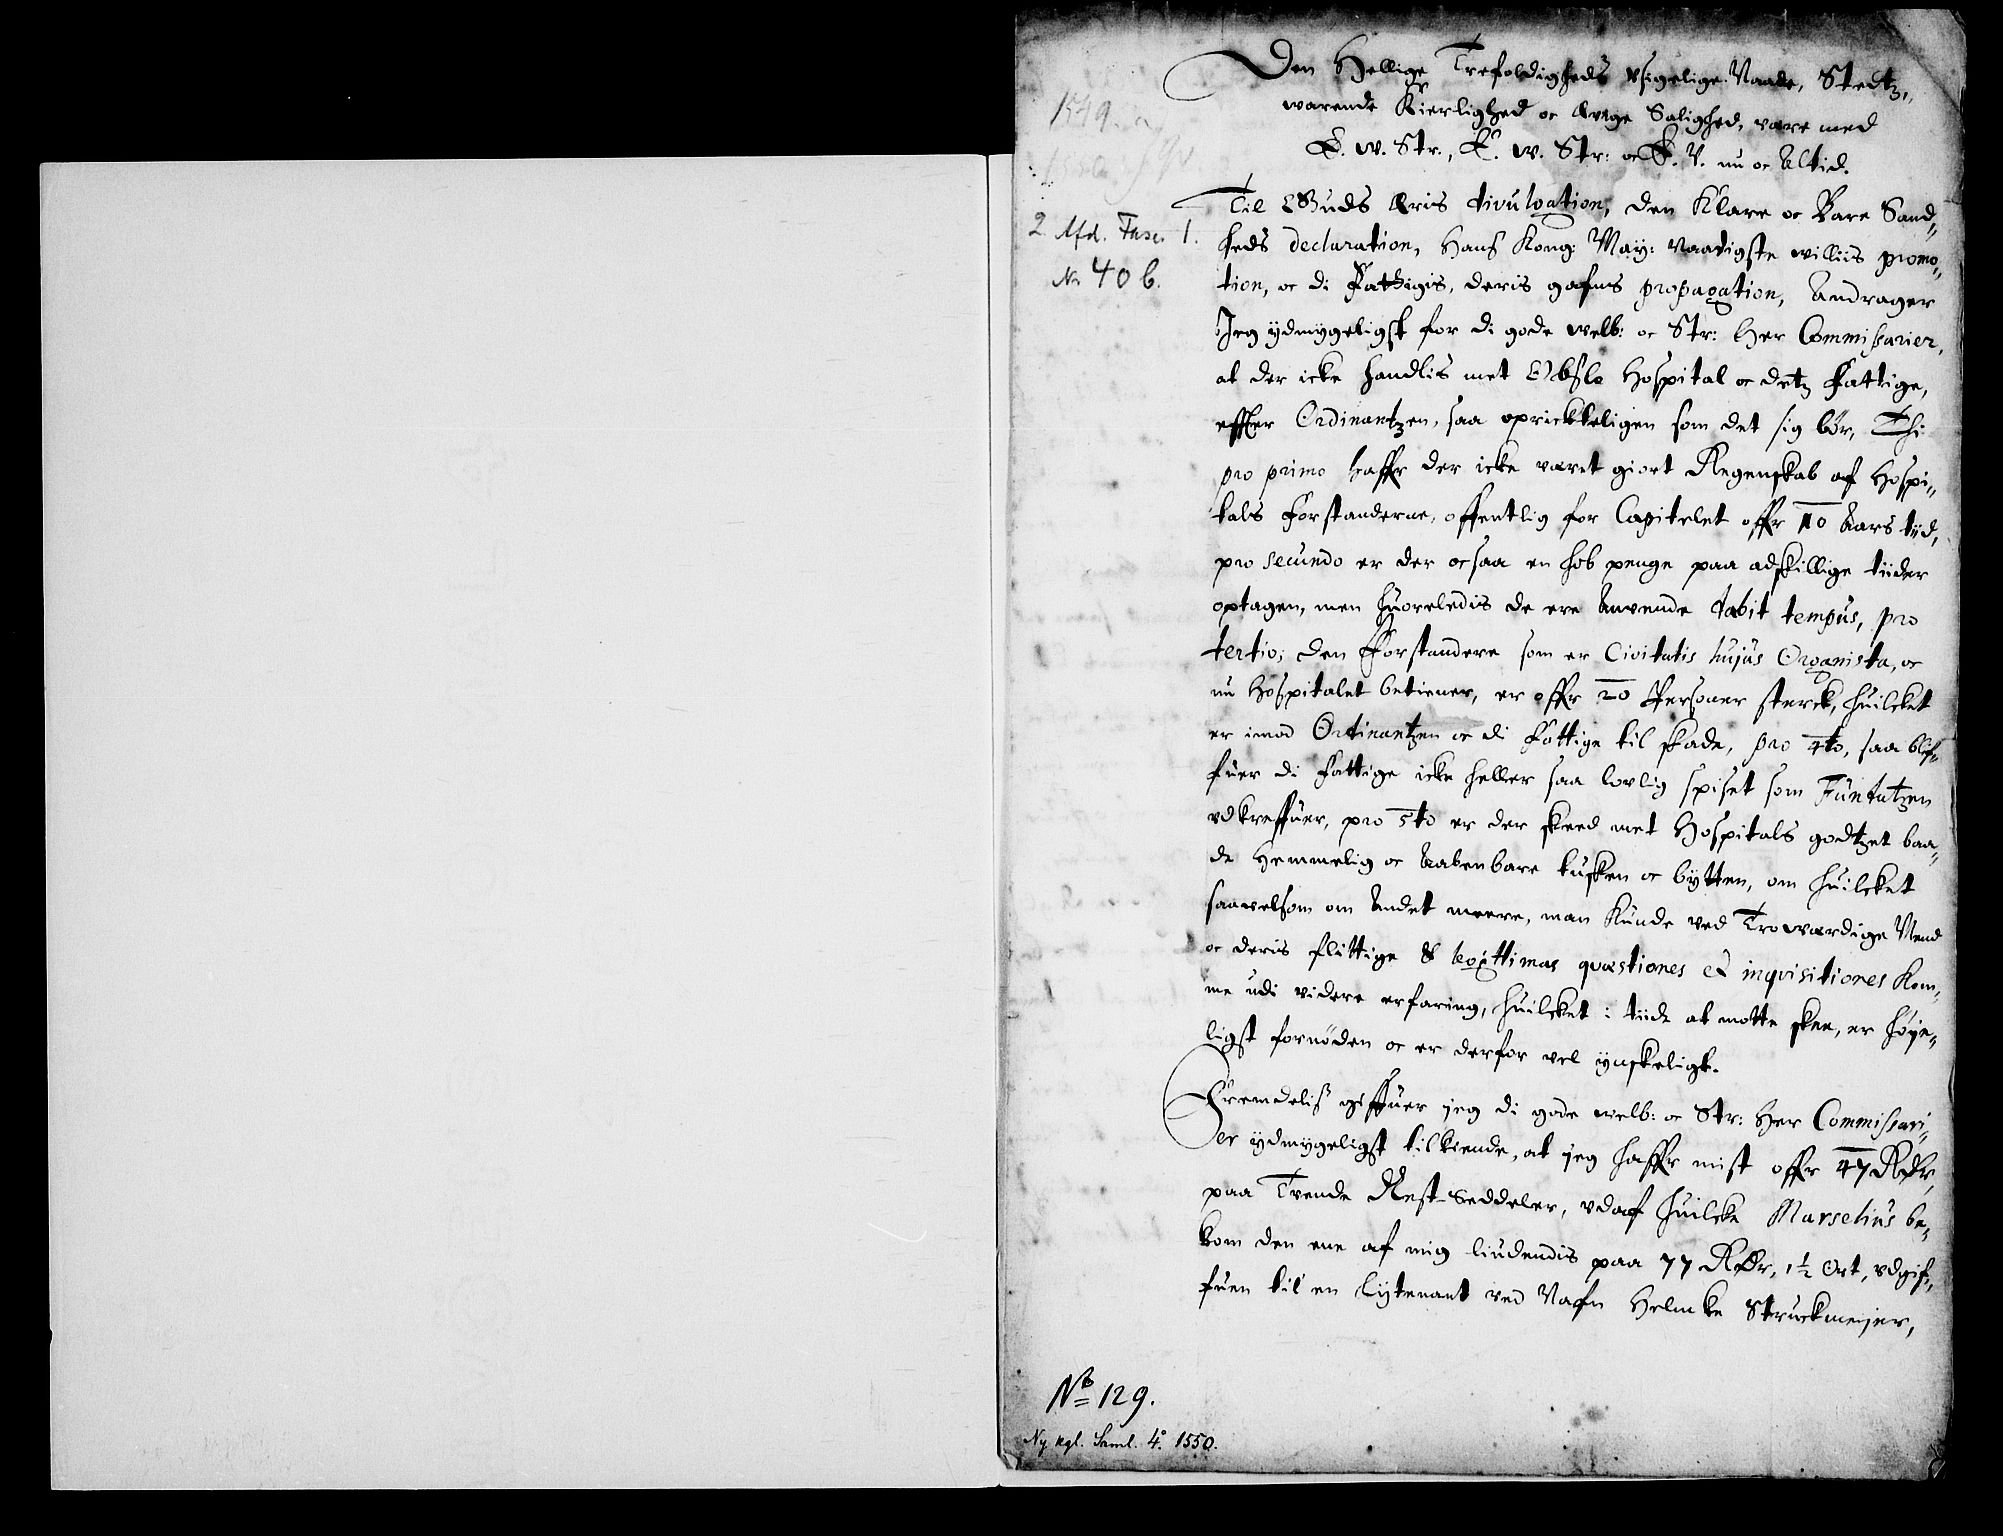 Den Hellige Trefoldigheds vsigelige Naade, Stedtz,,
warende Kierlighed oc Ævige Salighed, være med
E. w. Str., E. w. Str: oc E. V. nu oc Altid.
1549. a
1550
2 Afd. Fasc. 1.
Nr 40 b.
Til Guds Æris divulgation, den Klare oc Bare Sand,,
heds declaration, Hans Kong: May: Naadigste williis promo,,
tion, oc di Fattigis, deris gafns propagation, Andrager
Jeg ydmygeligst for di gode welb: oc Str: Her Commissarier,
at der icke handlis met Obslo Hospital oc detz Fattige,
effter Ordinantzen, saa oprickteligen som det sig bør, Thi
pro primo haffr der icke været giort Regenskab af Hospi,,
tals Forstanderne, offentlig for Capitelet offr 10 Aars tiid,
pro secundo er der ocsaa en hob penge paa adskillige tiider
optagen, men huoreledis de ere Anvende dabit tempus, pro
tertio, den Forstandere som er Civitatis hujus Organista, oc
nu Hospitalet betiener, er offr 20 Personer sterck, huilcket
er imod Ordinantzen oc di Fattige til skade, pro 4to, saa blif,,
fuer di Fattige icke heller saa lovlig spiset som Funtatzen
vdkreffuer, pro 5to er der skeed met Hospitals godtzet baa,,
de Hemmelig oc Aabenbare tusken oc bytten, om huilcket
saavelsom om Andet meere, man Kunde ved Trowærdige Mend
oc deris flittige & legittimas quæstiones et inqvisitiones Kom,,
me udi videre erfaring, huilcket i tiide at motte skee, er høye,,
ligst fornøden oc er derfor vel ynskeligt.
Fremdeliß giffuer jeg di gode welb: oc Str: Her Commissari,,
er ydmygeligst tilkiende, at jeg haffr mist offr 47 Rdr,
paa Trende Rest-Seddeler, vdaf huilcke Marselius be,,
kom den ene af mig liudendis paa 77 Rdr, 1½ Ort, vdgif,,
fuen til en Lytenant ved Nafn Helmke Struckmeijer,
No 129.
Ny kgl. Saml. 4o. 1550.